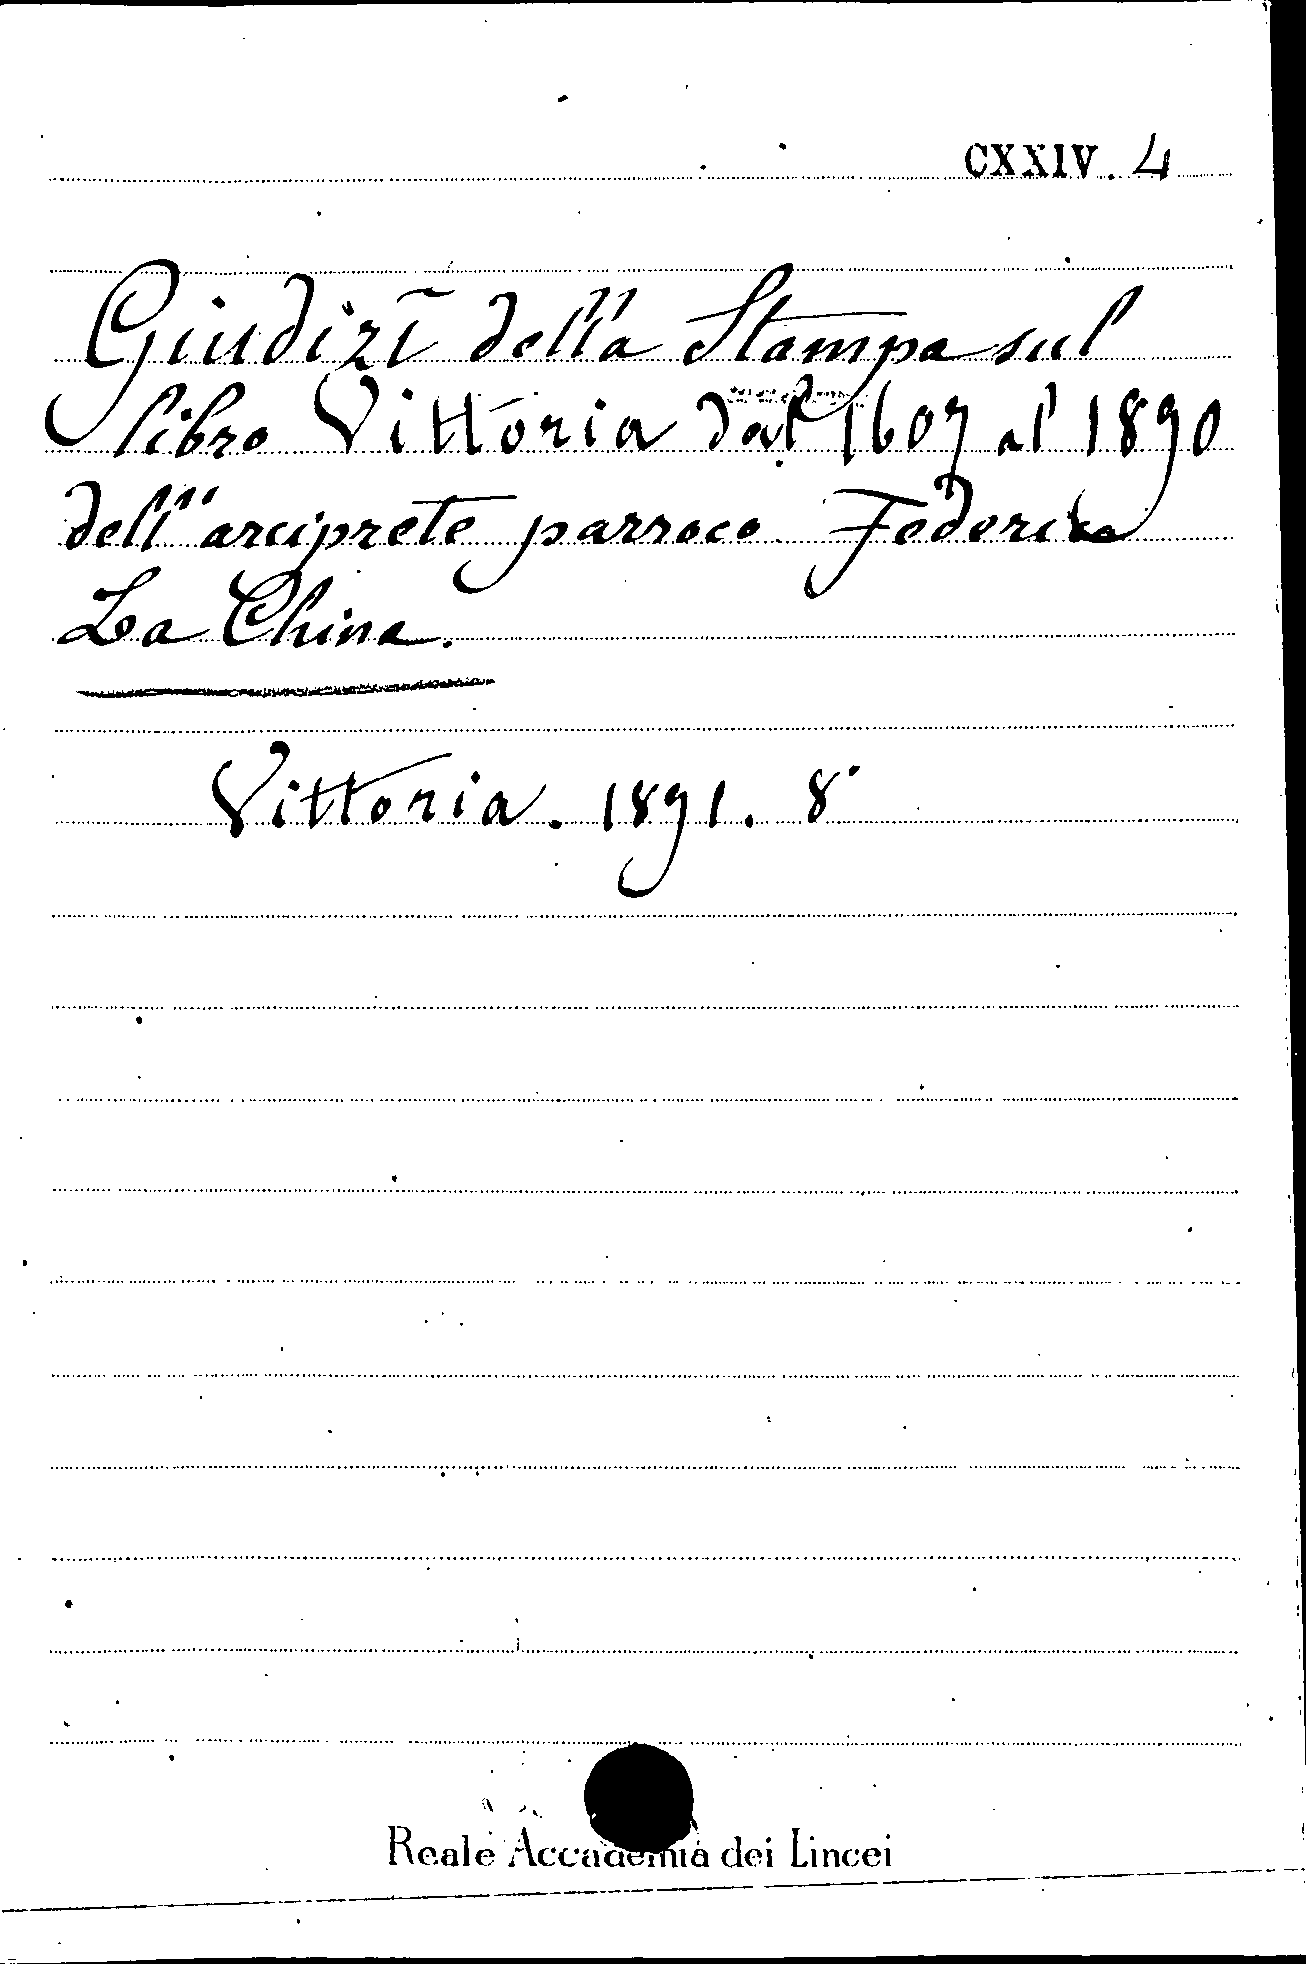 CXXIV. 4
Giudizî della Stampa sul
libro Vittoria dal 1607 al 1890
dell'arciprete parroco Federico
La China.
Vittoria. 1891. 8°
Reale Accademia dei Lincei